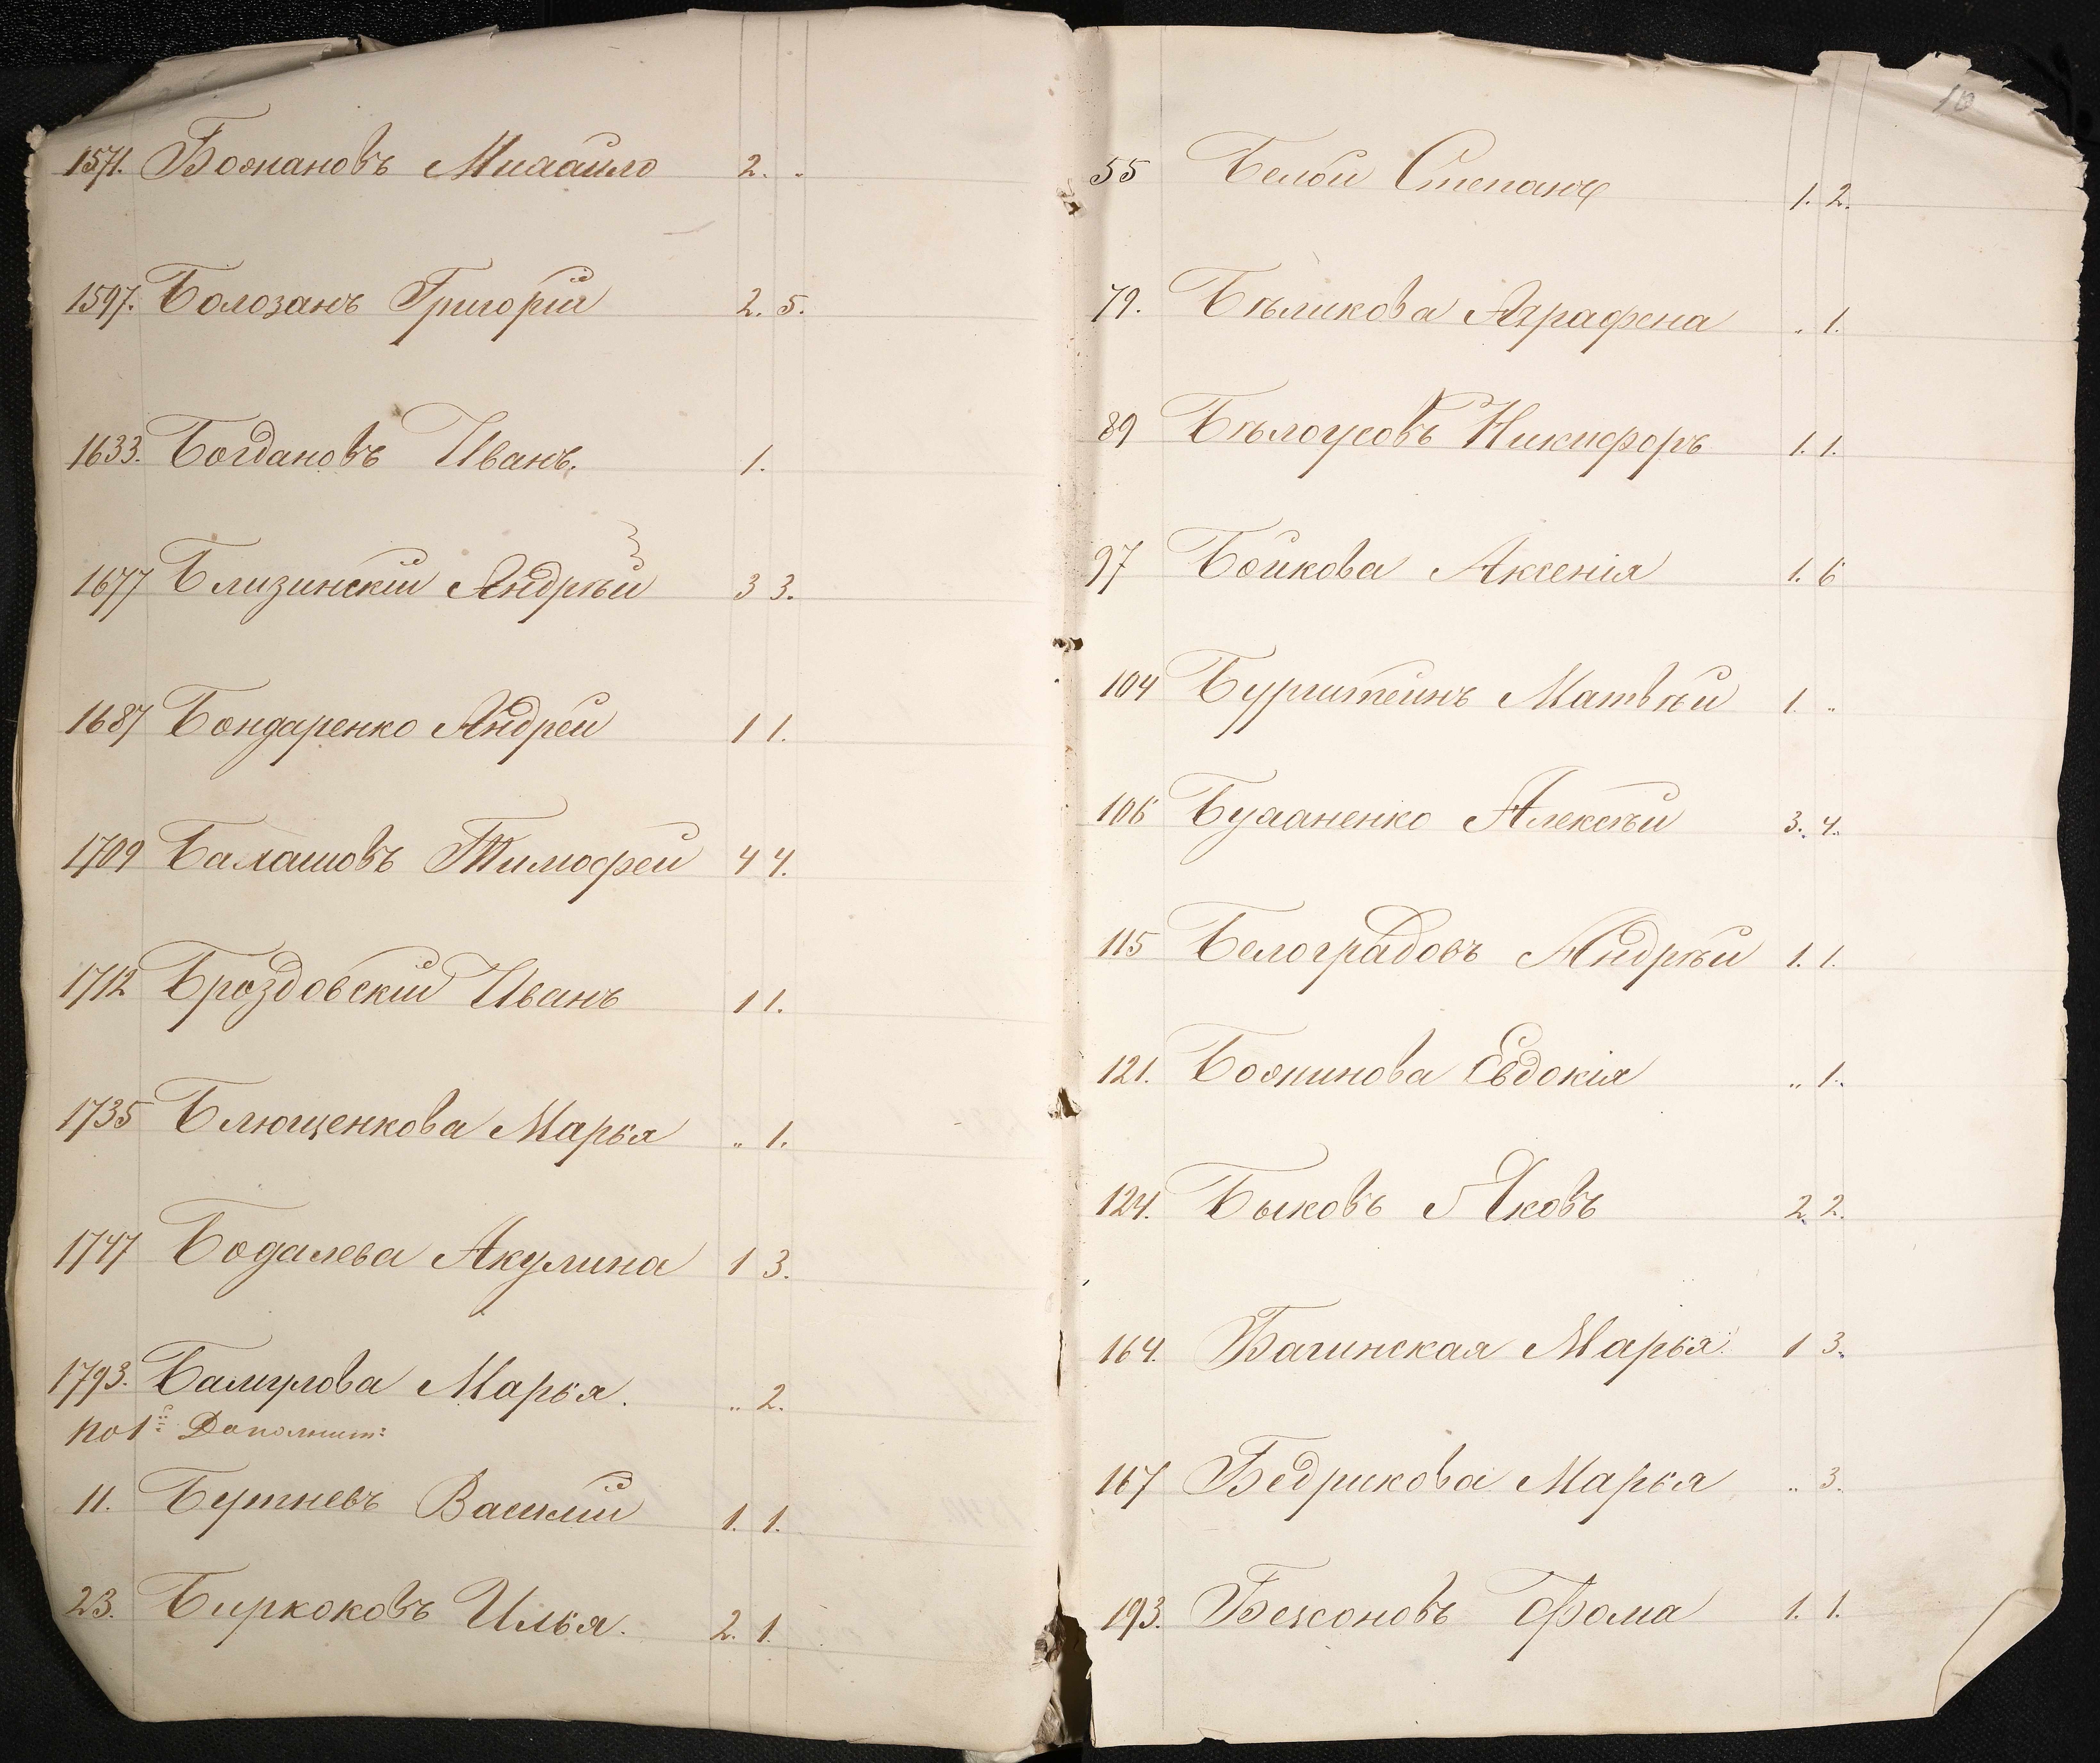 1571. Божановъ Михайло 2. „
1597. Болозанъ Григорій 2. 5.
1633. Богдановъ Иванъ. 1.
1677 Близинскій Андрѣй 3 3.
1687 Бондаренко Андрей 1 1.
1709 Балашовъ Тимофей 4 4.
1712 Броздовскій Иванъ 1 1.
1735 Блющенкова Марья „ 1.
1747 Бодалева Акулина 1 3.
1793. Марья. „ 2.
по 1й Дополнит:
11. Василій 1. 1.
23. Биркоковъ Илья. 2. 1.
10
55 Белой Степанъ 1. 2.
79. Бѣликова Аграфена „ 1.
89 Бѣлоусовъ Никифоръ 1. 1.
97 Бойкова Аксенія 1. 6
104 Бурштейнъ Матвѣй 1. „
106 Буханенко Алексѣй 3. 4.
115 Белоградовъ Андрѣй 1. 1.
121. Божинова Евдокія „ 1.
124. Быковъ Яковъ 2. 2.
164. Багинская Марья. 1 3.
167 Бедрикова Марья „ 3.
193. Фома 1. 1.